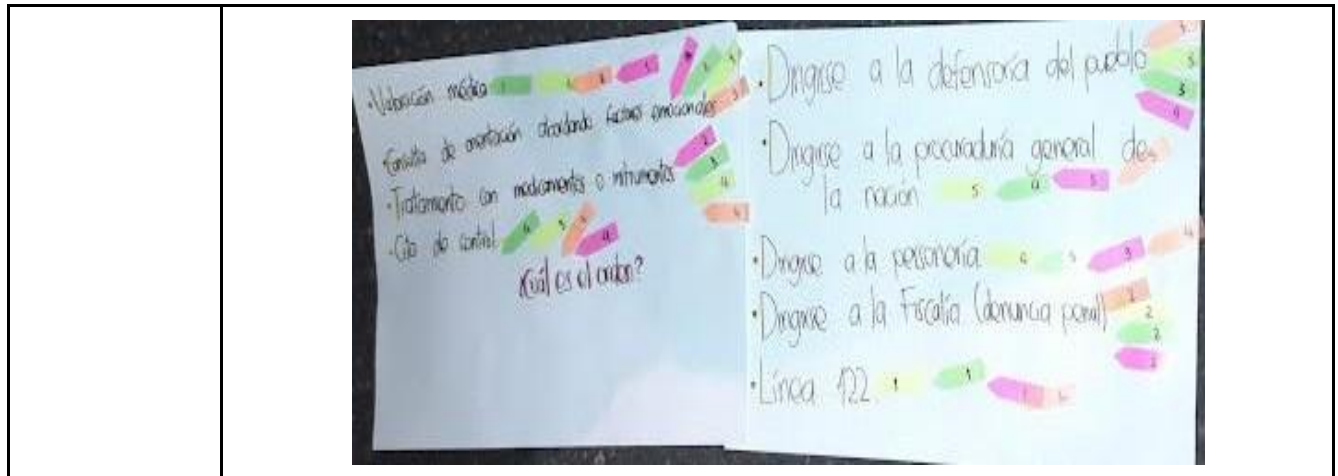 ·Valoración médica
Consulta de orientación abordando factores emocionales
·Tratamiento con medicamentos o intrumentos
·Cita de control
¿Cuál es el orden?
·Dirigirse a la defensoría del pueblo
·Dirigirse a la procuraduría general de
la nación
·Dirigirse a la personería
·Dirigirse a la Fiscalía (denuncia penal)
·Línea 122